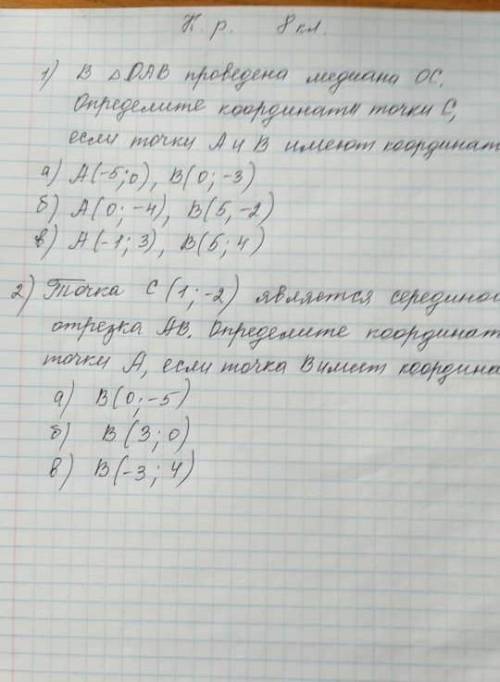 К. р. 8 кл.
1) В △ОАВ проведена медиана ОС.
Определите координаты точки С,
если точки А и В имеют координат
а) А(-5;0), В(0; -3)
б) А(0; -4), В(5, -2)
в) А(-1; 3), В(5; 4)
2) Точка С (1; -2) является серединой
отрезка АВ. Определите координат
точки А, если точка В имеет координа
а) В(0; -5)
б) В(3; 0)
в) В(-3; 4)